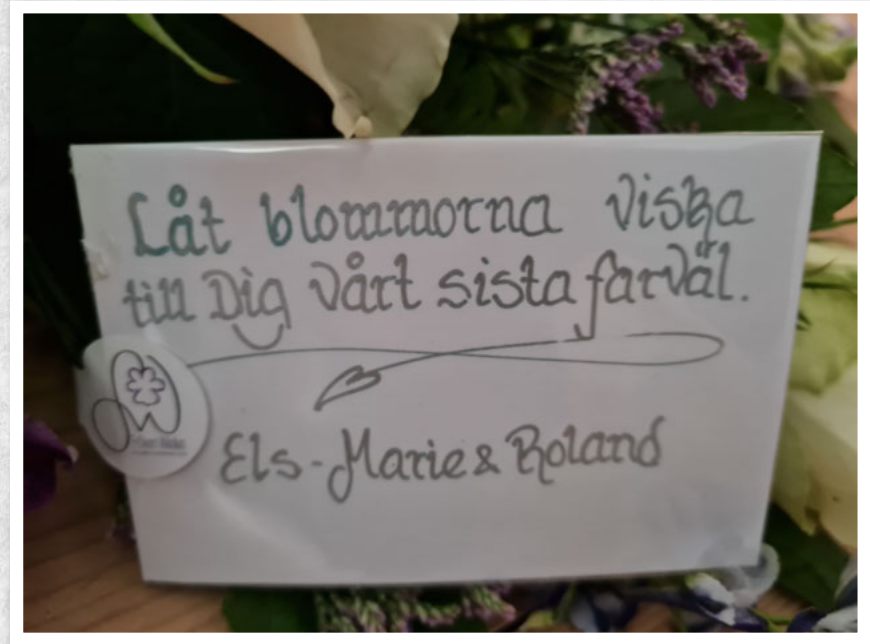 Låt blommorna viska
till Dig vårt sista farväl.
Els-Marie & Roland